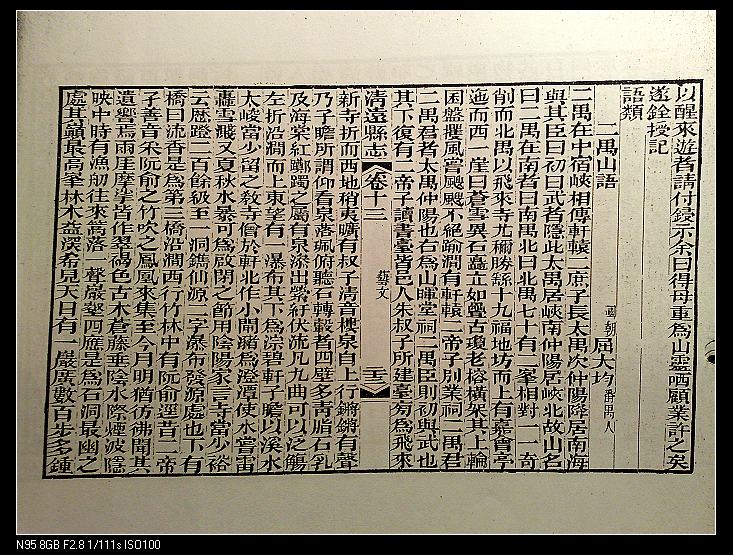 以醒來遊者請付鋟示余曰得毋重為山靈哂顧業許之矣
遂銓授記
語類
二禺山語
國朝屈大均番禺人
二禺在中宿峽相傳軒轅二庶子長太禺次仲陽降居南海
與其臣曰初曰武者隱此太禺居峽南仲陽居峽北故山名
曰二禺在南者曰南禺北曰北禺七十有二峯相對一一奇
削而北禺以飛來寺尤

勝
十九福地坊而上有
亭
迤而西一崖曰蒼雲異石矗立如
古瓊老榕橫架其上輪
囷盤
風嘗颼颼不絕踰澗有軒轅二帝子別業祠二禺君
二禺君者太禺仲陽也右為山暉堂祠二禺臣則初與武也
其下復有二帝子讀書臺皆邑人朱叔子所建臺
為飛來
清遠縣志
卷十三
藝文
三
新寺折而西地稍夷曠有叔子清音樓泉自上行鏘鏘有聲
乃子瞻所謂仰看泉落珮俯聽石轉轂者四壁多青脂石乳
及海棠紅躑躅之屬有泉滲出縈紆伏流凡九曲可以泛觴
左折沿澗而上東望有一瀑布其下為淙碧軒子瞻以溪水
太峻當少留之敎寺僧於軒北作小閘瀦為澄潭使水嘗雷
轟雪濺又夏秋水暴可為啟閉之節用陰陽家言寺當少裕
云歷磴二百餘級至一洞鐫仙源二字瀑布發源處也下有
橋曰流香是為第三橋沿澗西行竹林中有阮俞逕昔二帝
子善音采阮俞之竹吹之鳳凰來集至今月明猶彷彿聞其
遺響焉兩厓摩挲皆作翠褐色古木蒼藤垂陰水際煙波隱
映中時有漁舠往來蒿落一聲巖壑四應是為石洞最幽之
處其巔最高峯林木益深希見天日有一巖廣數百步多鍾